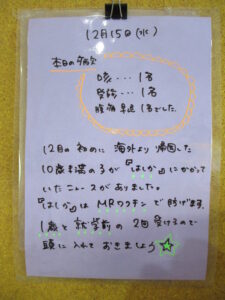 12月15日(水)
本日の多欠
咳… 1名
発疹… 1名
腹痛早退 1名でした。
12月の初めに 海外より 帰国した
10歳未満の子が 『はしか』にかかって
いたニュースがありました。
『はしか』は MRワクチン で防げます。
1歳と 就学前の 2回 受けるので
頭に 入れて おきましょう